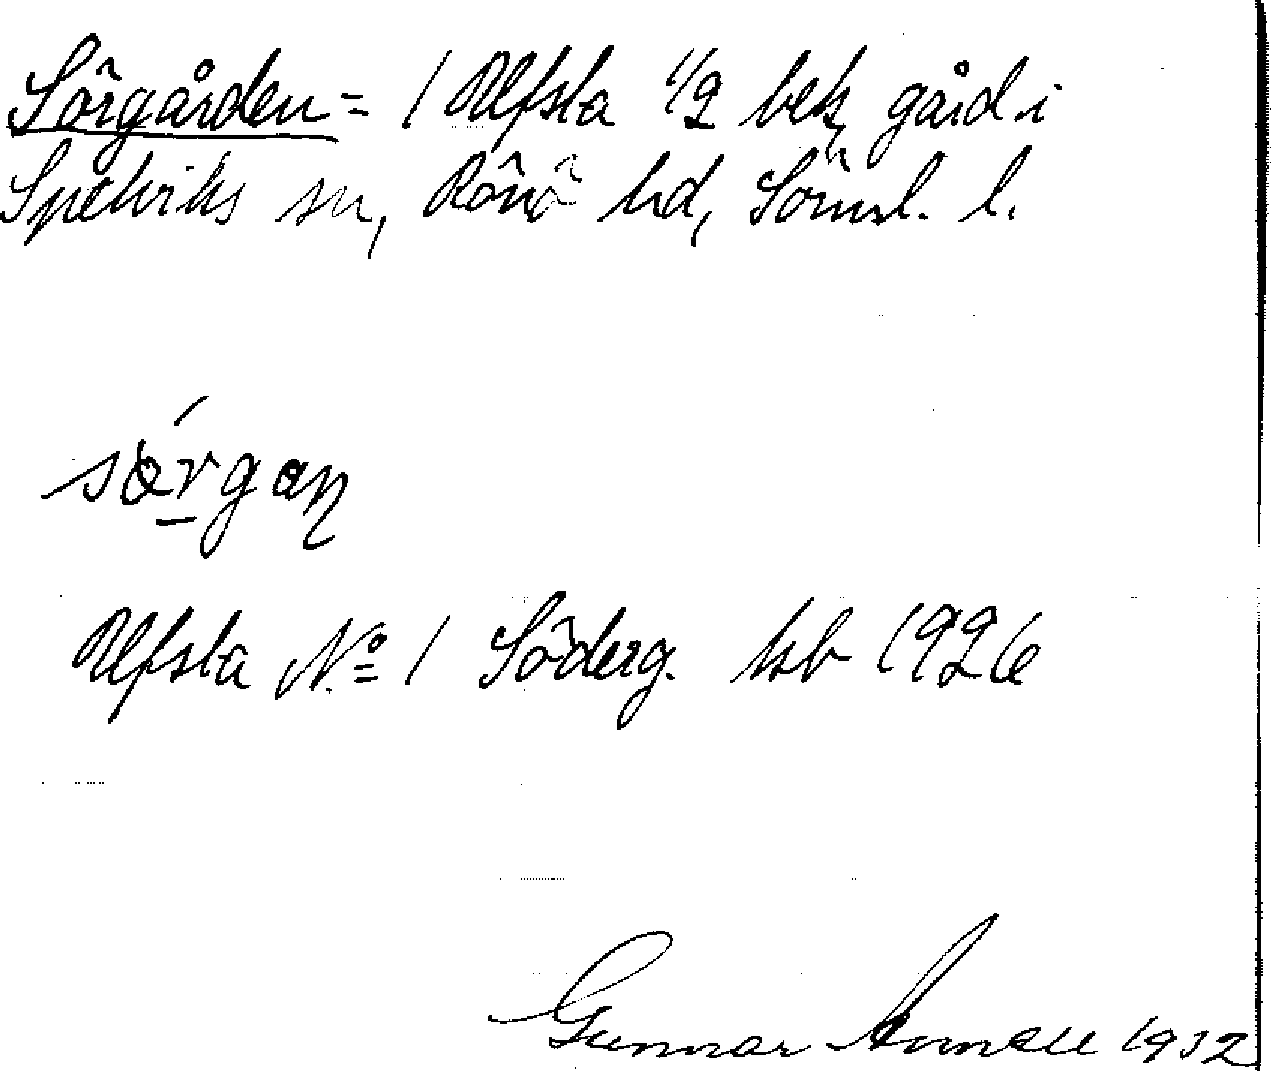 Sörgården = 1 Ulfsta 1/2 bek gård i
Spelviks sn, Rönö hd, Söml. l.
Ulfsta No 1 Söderg. kb 1926
Gunnar 1932